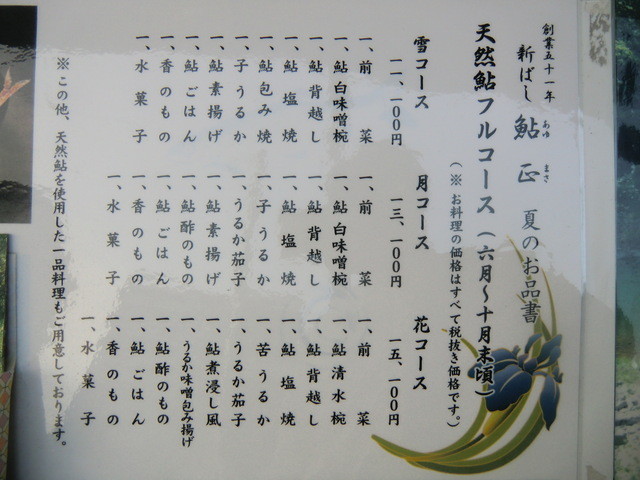 創業五十一年
新ばし 鮎正 夏のお品書
あゆ まさ
天然鮎フルコース（六月～十月末頃）
（※お料理の価格はすべて税抜き価格です。）
雪コース
一一、一〇〇円
一、前菜
一、鮎白味噌椀
一、鮎背越し
一、鮎塩焼
一、鮎包み焼
一、子うるか
一、鮎素揚げ
一、鮎ごはん
一、香のもの
一、水菓子
月コース
一三、一〇〇円
一、前菜
一、鮎白味噌椀
一、鮎背越し
一、鮎塩焼
一、子うるか
一、うるか茄子
一、鮎素揚げ
一、鮎酢のもの
一、鮎ごはん
一、香のもの
一、水菓子
花コース
一五、一〇〇円
一、前菜
一、鮎清水椀
一、鮎背越し
一、鮎塩焼
一、苦うるか
一、うるか茄子
一、鮎煮浸し風
一、うるか味噌包み揚げ
一、鮎酢のもの
一、鮎ごはん
一、香のもの
一、水菓子
※この他、天然鮎を使用した一品料理もご用意しております。